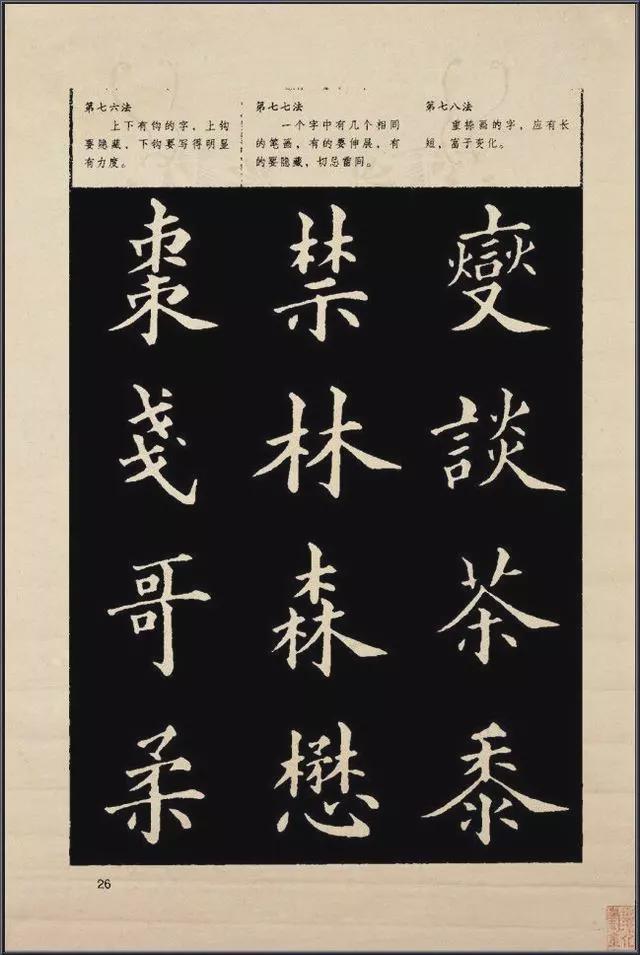 第七六法
上下有钩的字，上钩
要隐藏，下钩要写得明显
有力度。
第七七法
一个字中有几个相同
的笔画，有的要伸展，有
的要隐藏，切忌雷同。
第七八法
重捺画的字，应有长
短，富于变化。
棗
戔
哥
柔
禁
林
森
懋
燮
談
茶
黍
26